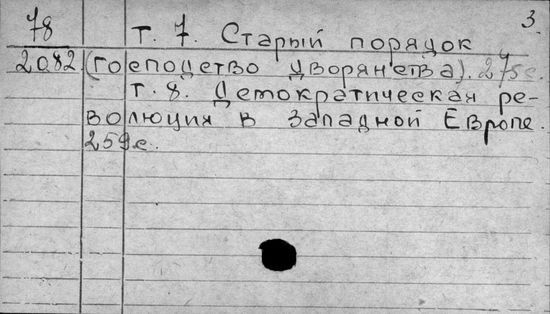 3.
78 Т. 7. Старый порядок
2082 (господство дворянства). 275с.
Т. 8. Демократическая ре-
волюция в Западной Европе.
259с.